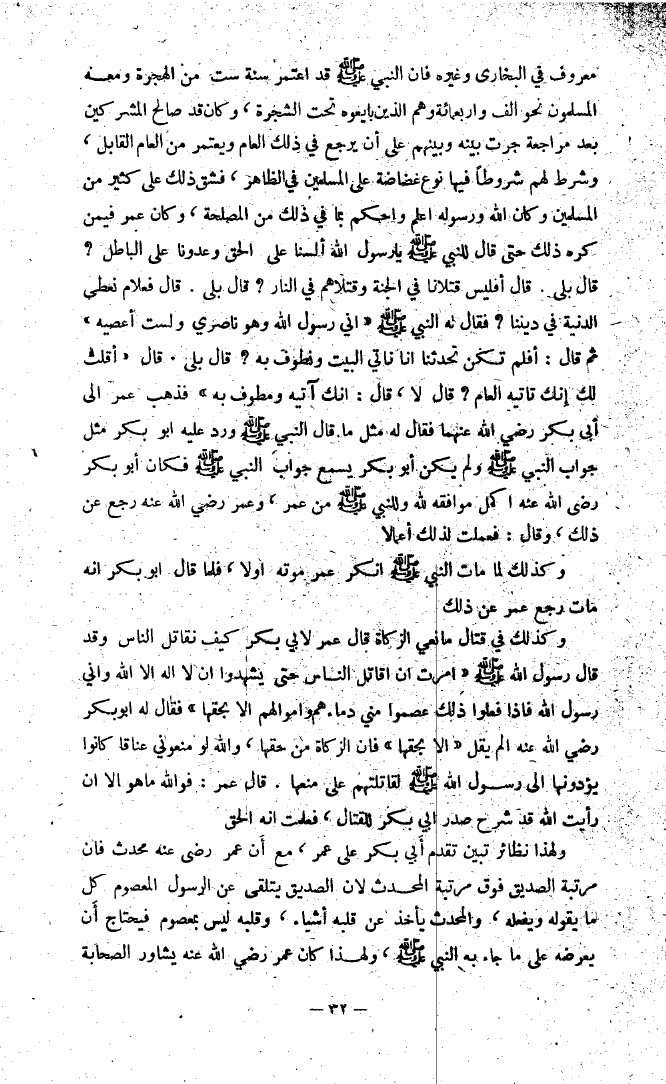 معروف في البخارى وغيره فان النبي ﷺ قد اعتمر سنة ست من الهجرة ومعه
المسلمون نحو الف واربعمائة وهم الذين بايعوه تحت الشجرة ، وكان قد صالح المشركين
بعد مراجعة جرت بينه وبينهم على أن يرجع في ذلك العام ويعتمر من العام القابل ،
وشرط لهم شروطاً فيها نوع غضاضة على المسلمين في الظاهر ، فشق ذلك على كثير من
المسلمين وكان الله ورسوله اعلم واحكم بما في ذلك من المصلحة ، وكان عمر فيمن
كره ذلك حتى قال للنبي ﷺ يارسول الله ألسنا على الحق وعدونا على الباطل ؟
قال بلى . قال أفليس قتلانا في الجنة وقتلاهم في النار ؟ قال بلى . قال فعلام نعطي
الدنية في ديننا ؟ فقال له النبي ﷺ « اني رسول الله وهو ناصري ولست أعصيه »
ثم قال : أفلم تكن تحدثنا انا ناتي البيت ونطوف به ؟ قال بلى . قال « أقلت
لك إنك تاتيه العام ؟ قال لا ، قال : انك آتيه ومطوف به » فذهب عمر الى
أبي بكر رضي الله عنهما فقال له مثل ما قال النبي ﷺ ورد عليه ابو بكر مثل
جواب النبي ﷺ ولم يكن أبو بكر يسمع جواب النبي ﷺ فكان أبو بكر
رضى الله عنه اكمل موافقه لله وللنبي ﷺ من عمر ، وعمر رضي الله عنه رجع عن
ذلك ، وقال : فعملت لذلك أعمالا
وكذلك لما مات النبي ﷺ انكر عمر موته اولا ، فلما قال ابو بكر انه
مات رجع عمر عن ذلك
وكذلك في قتال مانعي الزكاة قال عمر لابي بكر كيف نقاتل الناس وقد
قال رسول الله ﷺ « امرت ان اقاتل الناس حتى يشهدوا ان لا اله الا الله واني
رسول الله فاذا فعلوا ذلك عصموا مني دماءهم واموالهم الا بحقها » فقال له ابوبكر
رضي الله عنه الم يقل « الا بحقها » فان الزكاة من حقها ، والله لو منعوني عناقا كانوا
يؤدونها الى رسول الله ﷺ لقاتلتهم على منعها . قال عمر : فوالله ماهو الا ان
رأيت الله قد شرح صدر ابي بكر للقتال ، فعلمت انه الحق
ولهذا نظائر تبين تقدم أبي بكر على عمر ، مع أن عمر رضى عنه محدث فان
مرتبة الصديق فوق مرتبة المحدث لان الصديق يتلقى عن الرسول المعصوم كل
ما يقوله ويفعله ، والمحدث يأخذ عن قلبه أشياء ، وقلبه ليس بمعصوم فيحتاج أن
يعرضه على ما جاء به النبي ﷺ ، ولهذا كان عمر رضي الله عنه يشاور الصحابة
— ٣٢ —